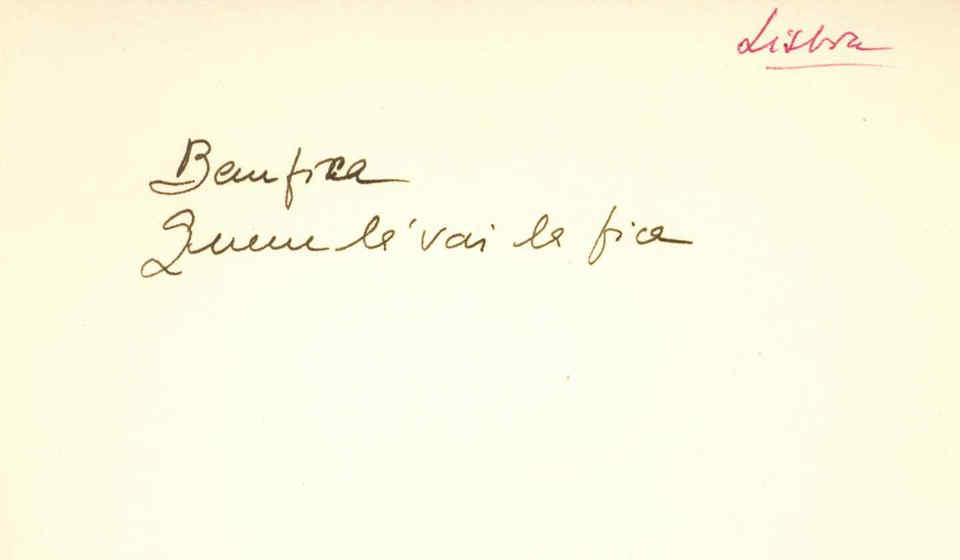 Lisboa
Bemfica
Quem lá vai lá fica